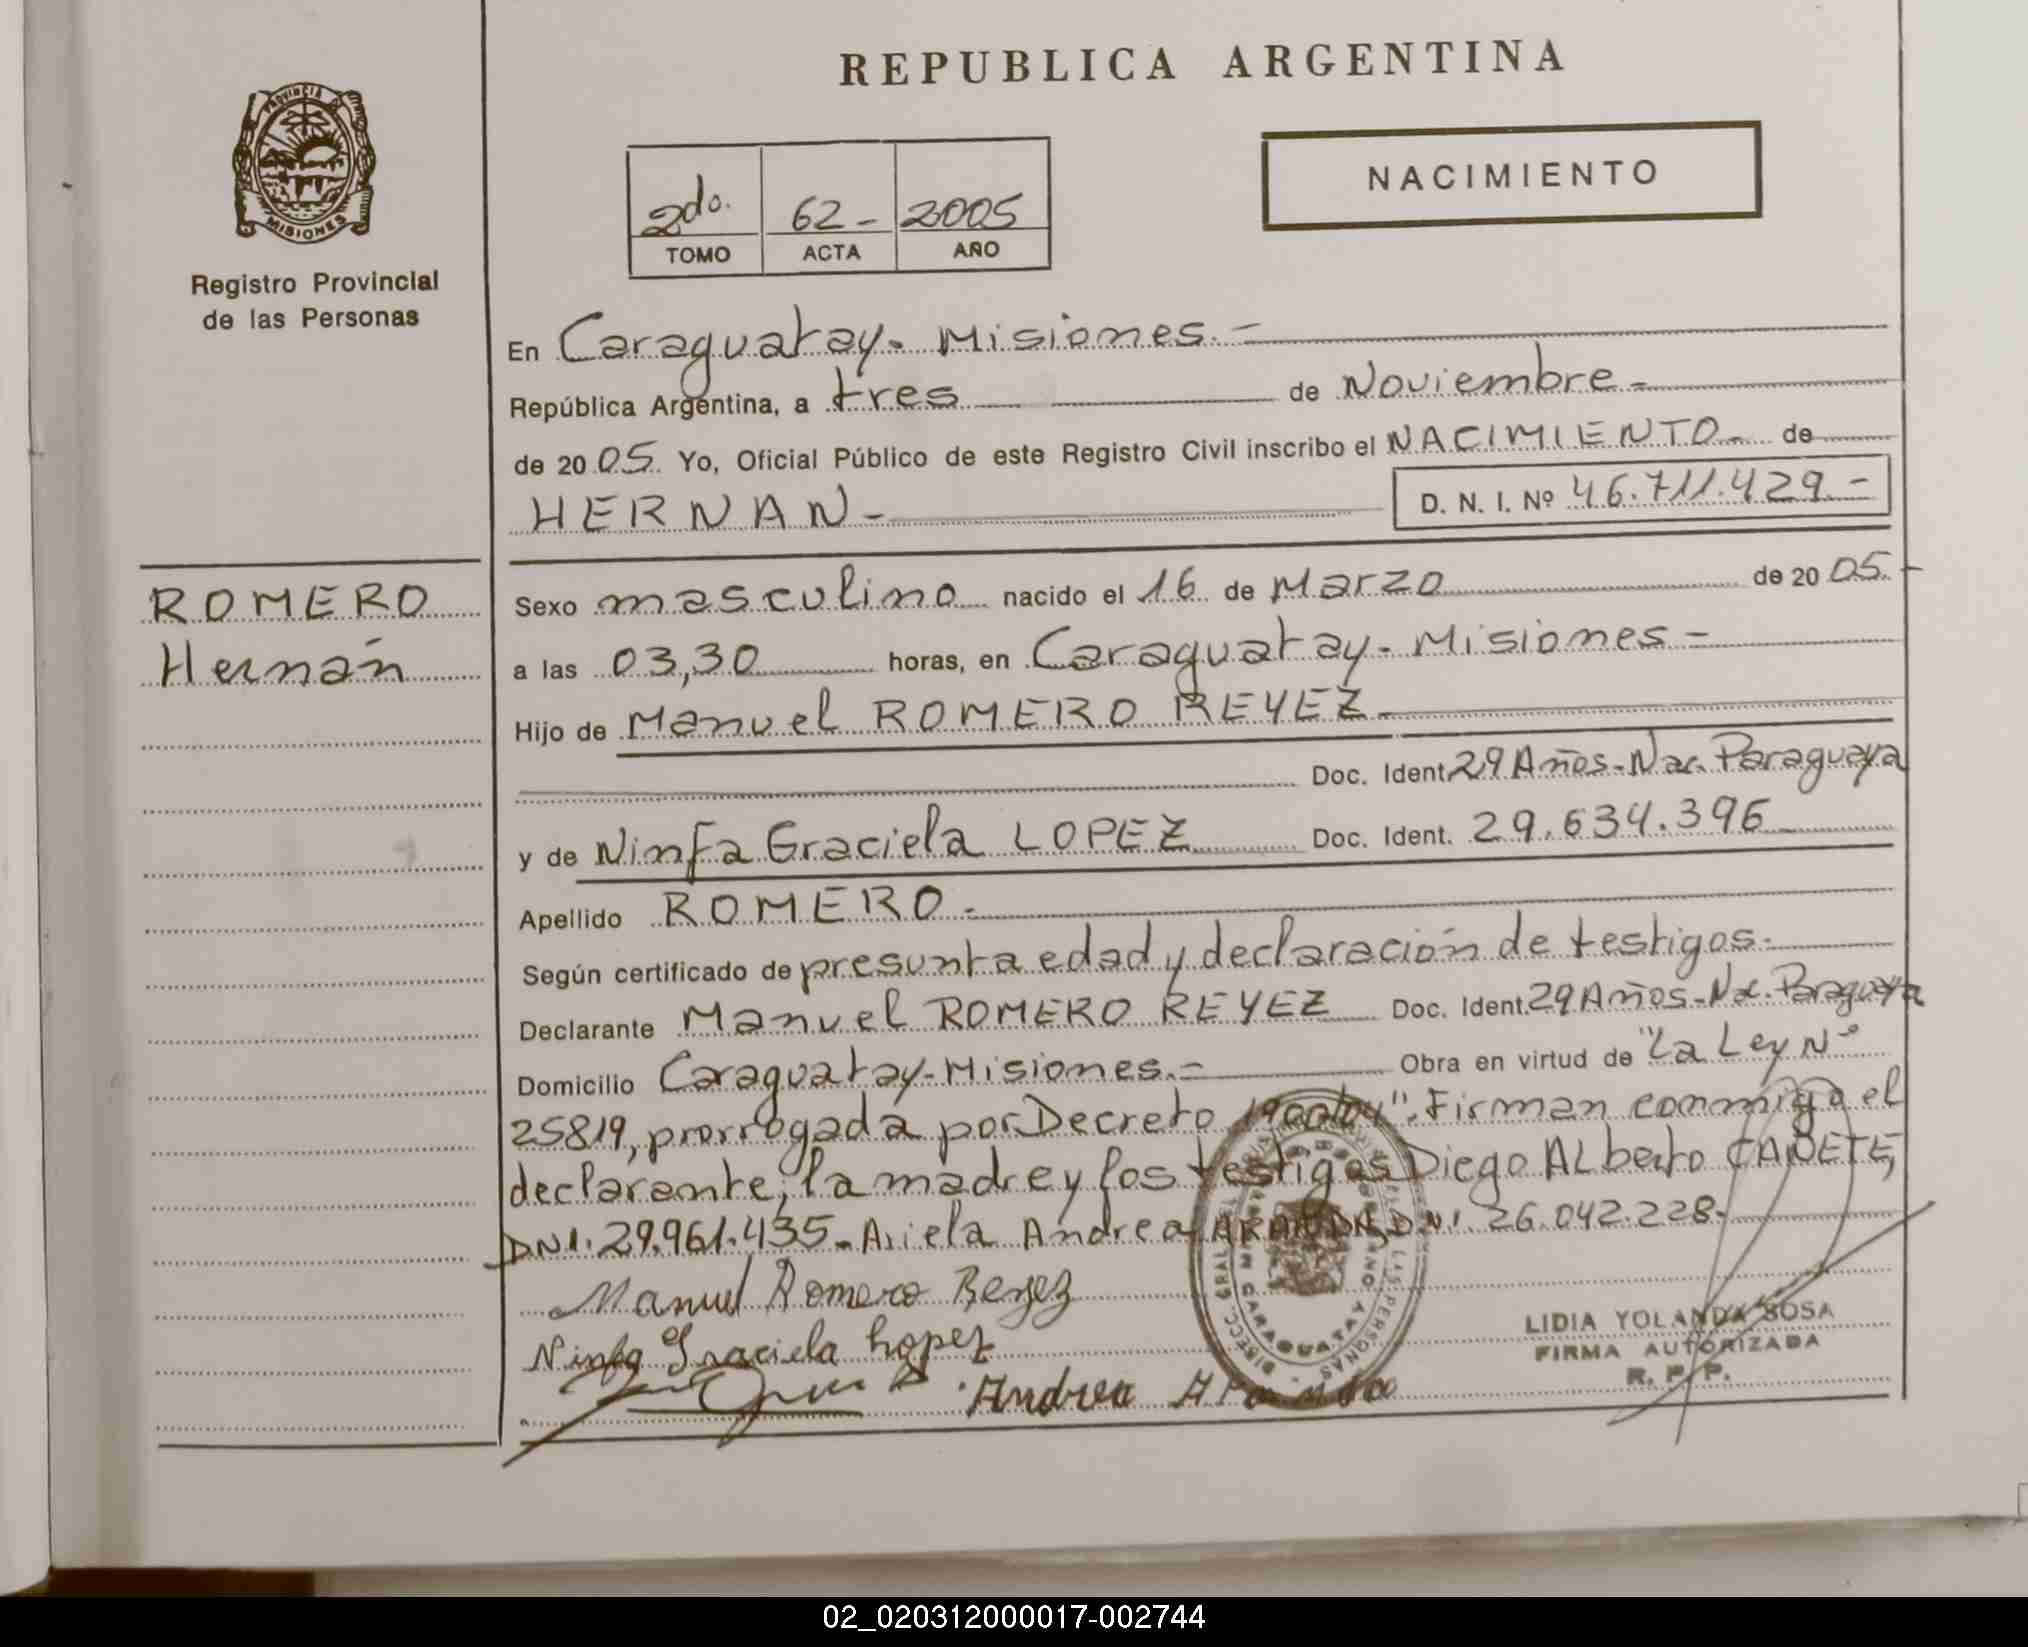 REPUBLICA ARGENTINA
PROVINCIA DE
MISIONES
Registro Provincial
de las Personas
2do. 62- 2005
TOMO ACTA AÑO
NACIMIENTO
En Caraguatay. Misiones.-
República Argentina, a tres de Noviembre-
de 2005. Yo, Oficial Público de este Registro Civil inscribo el NACIMIENTO- de
HERNAN- D. N. I. Nº 46.711.429.-
ROMERO
Hernán
Sexo masculino nacido el 16 de Marzo de 2005.-
a las 03,30 horas, en Caraguatay- Misiones-
Hijo de Manuel ROMERO REYEZ-
Doc. Ident. 29 Años-Nac. Paraguaya
y de Ninfa Graciela LOPEZ Doc. Ident. 29.634.396
Apellido ROMERO.-
Según certificado de presunta edad y declaración de testigos.-
Declarante Manuel ROMERO REYEZ Doc. Ident. 29 Años-Nac. Paraguaya
Domicilio Caraguatay-Misiones.- Obra en virtud de "La Ley Nº
25819, prorrogada por Decreto". Firman conmigo el
declarante, la madre y los testigos Diego ALberto CAÑETE,
DNI. 29.961.435- Ariela Andrea ARANDA, DNI. 26.042.228-
Manuel Romero Reyez
Ninfa Graciela Lopez
Andrea Aranda
CARAGUATAY
LIDIA YOLANDA SOSA
FIRMA AUTORIZADA
R. P. P.
02_020312000017-002744